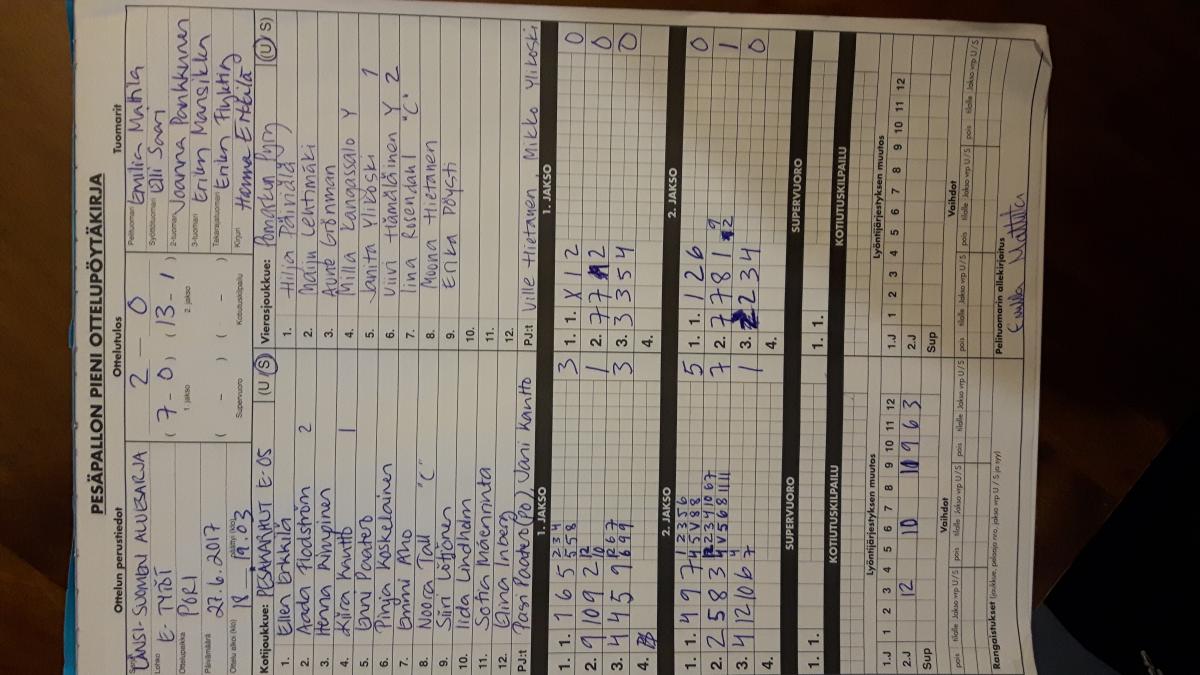 PESÄPALLON PIENI OTTELUPÖYTÄKIRJA
Ottelun perustiedot
Ottelutulos
Tuomarit
Sarja LÄNSI-SUOMEN ALUESARJA
Lohko E-TYTÖT
Ottelupaikka PORI
Päivämäärä 27.6.2017
Ottelu alkoi (klo) 18 päättyi (klo) 19.03
2 – 0
( 7 - 0 ) ( 13 - 1 )
1. jakso 2. jakso
( - ) ( - )
Supervuoro Kotiutuskilpailu
Pelituomari Emilia Mattila
Syöttötuomari Elli Saari
2-tuomari Joanna Pankkunen
3-tuomari Erika Mansikka
Takarajatuomari Erika Flyktin
Kirjuri Henna Erkkilä
Kotijoukkue: PESÄKARHUT E-05 (U S)
1. Ellen Erkkilä
2. Aada Flodström 2
3. Henna Rinypinen
4. Kiira Kantto 1
5. Enni Paatero
6. Pinja Koskelainen
7. Emmi Aho
8. Noora Tall "C"
9. Siiri Löytönen
10. Iida Lindholm
11. Sofia Mäenrinta
12. Eina Inberg
PJ:t Pasi Paatero (PO), Jani Kantto
Vierasjoukkue: Pomarkun Pyry (U S)
1. Hilja Päivölä
2. Mailu Lehtimäki
3. Aune Grönman
4. Milla Kangassalo Y
5. Janita Ylikoski 1
6. Viivi Hämäläinen Y 2
7. Iina Rosendahl "C"
8. Moona Hietanen
9. Erika Pöysti
10.
11.
12.
PJ:t Ville Hietanen, Mikko Ylikoski
1. JAKSO
1. JAKSO
1. 1. 1 6 5 2 3 4 5 5 8 3
2. 9 10 9 2 12 10 1
3. 4 4 5 9 12 6 7 6 9 9 3
4.
1. 1. X 1 2 0
2. 7 7 12 0
3. 3 3 5 4 0
4.
2. JAKSO
2. JAKSO
1. 1. 4 9 7 1 2 3 5 6 4 5 V 8 8 5
2. 2 5 8 3 12 2 3 4 10 6 7 4 V 5 6 8 11 11 7
3. 4 12 10 6 4 7 1
4.
1. 1. 1 2 6 0
2. 7 7 8 1 9 12 1
3. 2 2 3 4 0
4.
SUPERVUORO
SUPERVUORO
1. 1.
1. 1.
KOTIUTUSKILPAILU
KOTIUTUSKILPAILU
Lyöntijärjestyksen muutos
Lyöntijärjestyksen muutos
1.J 1 2 3 4 5 6 7 8 9 10 11 12
2.J 12 10 11 10 9 6 3
Sup
1.J 1 2 3 4 5 6 7 8 9 10 11 12
2.J
Sup
Vaihdot
Vaihdot
pois tilalle Jakso vrp U / S pois tilalle Jakso vrp U / S pois tilalle Jakso vrp U / S
pois tilalle Jakso vrp U / S pois tilalle Jakso vrp U / S pois tilalle Jakso vrp U / S
Rangaistukset (joukkue, pelaaja nro, jakso vrp U / S ja syy)
Pelituomarin allekirjoitus
Emilia Mattila